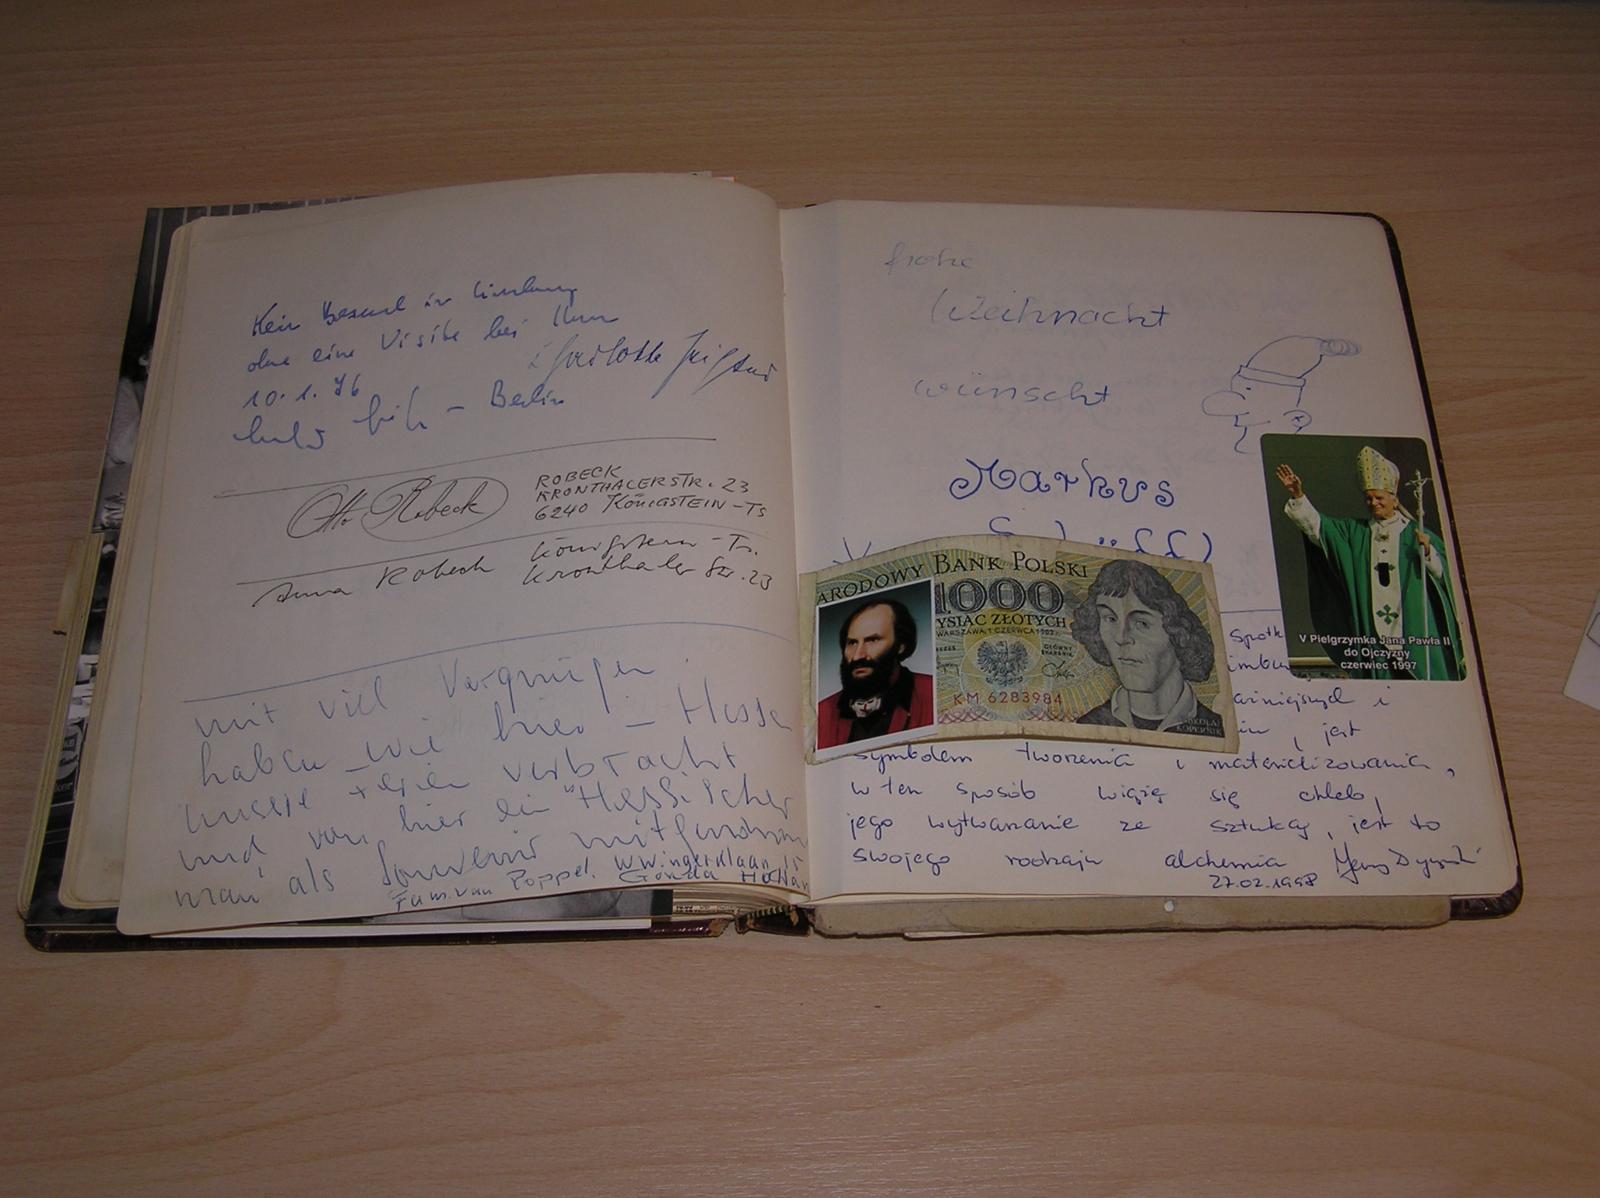 Kein Besuch in Limburg
ohne eine Visite bei Ihnen
Charlotte
10.1.76
– Berlin
Otto Robeck
ROBECK
KRONTHALERSTR. 23
6240 KÖNIGSTEIN-TS
Anna Robeck
Königstein-Ts.
Kronthaler Str. 23
mit viel Vergnügen
haben wir hier – Hessen
unsere Ferien verbracht
und von hier ein "Hessischer
man als Souvenir mitgenommen
Fam. van Poppel. W. Wingerklaan 15
Gouda Holland
frohe
Weihnacht
wünscht
Markus
V Pielgrzymka Jana Pawła II
do Ojczyzny
czerwiec 1997
NARODOWY BANK POLSKI
1000
TYSIĄC ZŁOTYCH
WARSZAWA 1 CZERWCA 1982 r.
GŁÓWNY
SKARBNIK
KM 6283984
MIKOŁAJ
KOPERNIK
i
jest
symbolem tworzenia i materializowania,
w ten sposób wiąże się chleb,
jego wytwarzanie ze sztuką, jest to
swojego rodzaju alchemia
27.02.1998